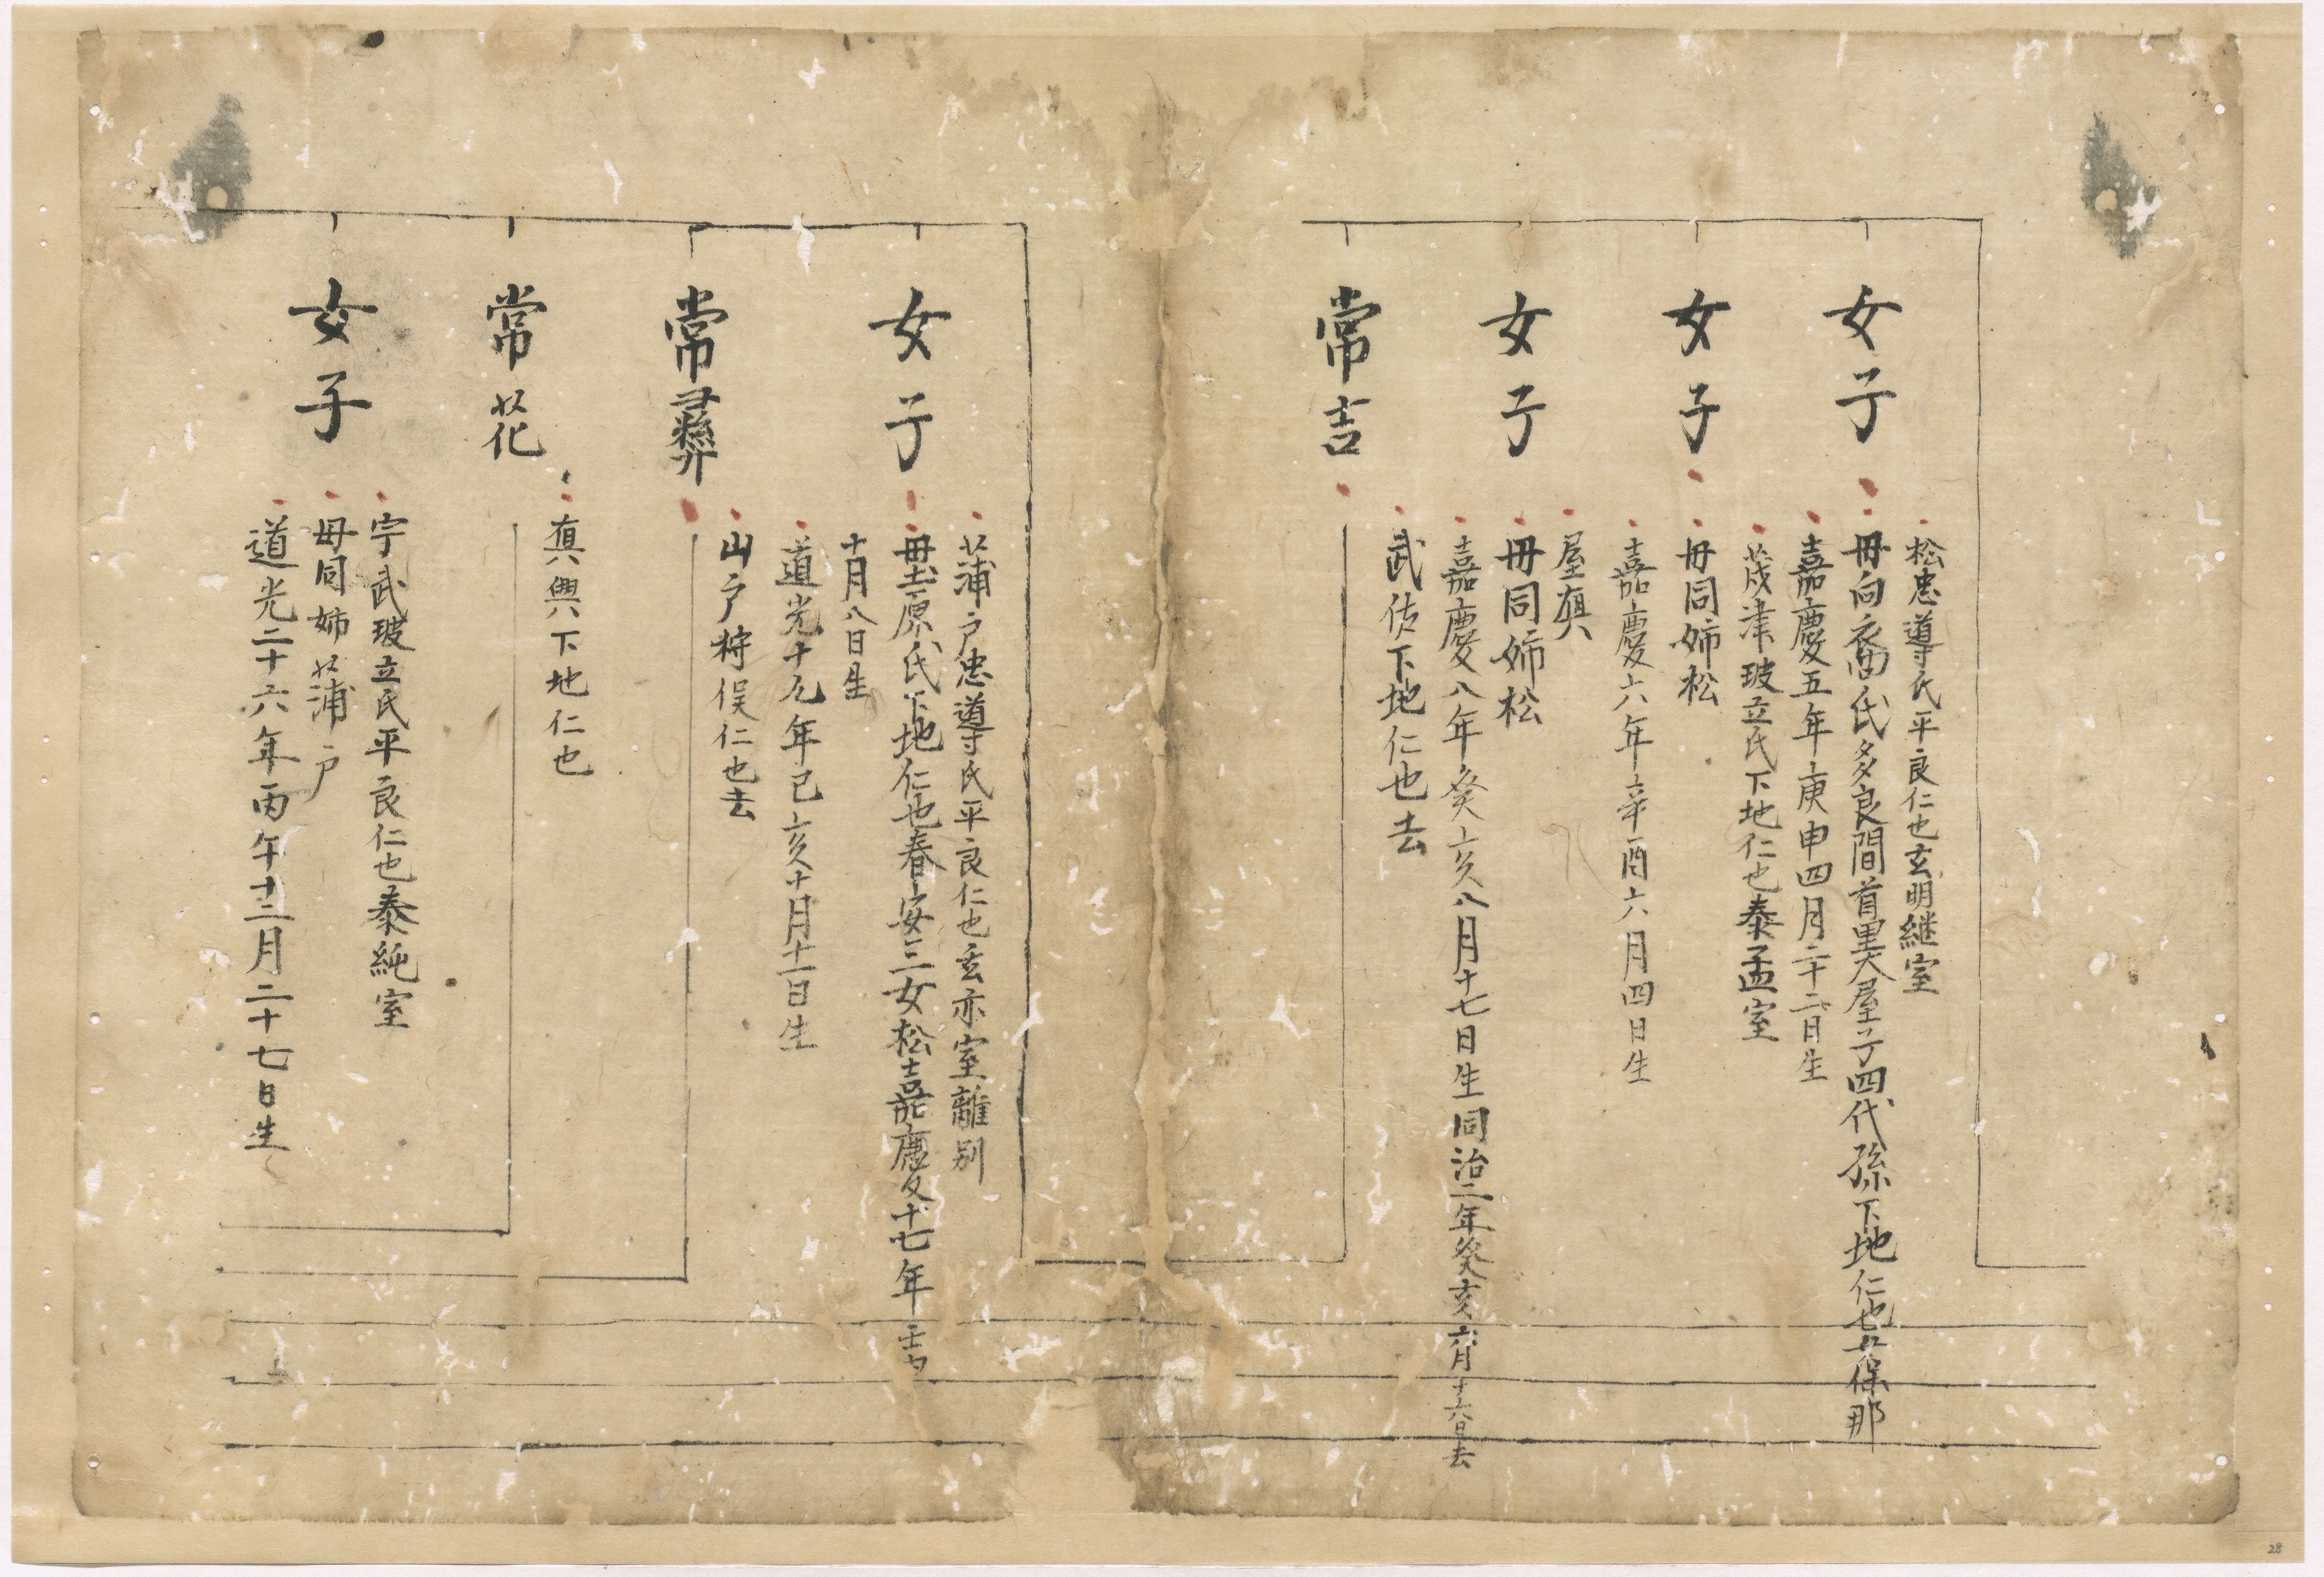 女子
松忠導氏平良仁也玄明継室
毋向裔氏多良間首里大屋子四代孫下地仁也女保那
嘉慶五年庚申四月二十二日生
女子
茂津玻立氏下地仁也泰孟室
毋同姉松
嘉慶六年辛酉六月四日生
女子
屋真
毋同姉松
嘉慶八年癸亥八月十七日生同治二年癸亥六月十六日去
常吉
武佐下地仁也去
女子
蒲戸忠導氏平良仁也玄亦室離別
毋土原氏下地仁也春安三女松嘉慶十七年壬申
十月八日生
道光十九年己亥十月十一日生
常彛
山戸狩俣仁也去
常花
真與下地仁也
女子
宇武玻立氏平良仁也泰純室
毋同姉蒲戸
道光二十六年丙午十二月二十七日生
28